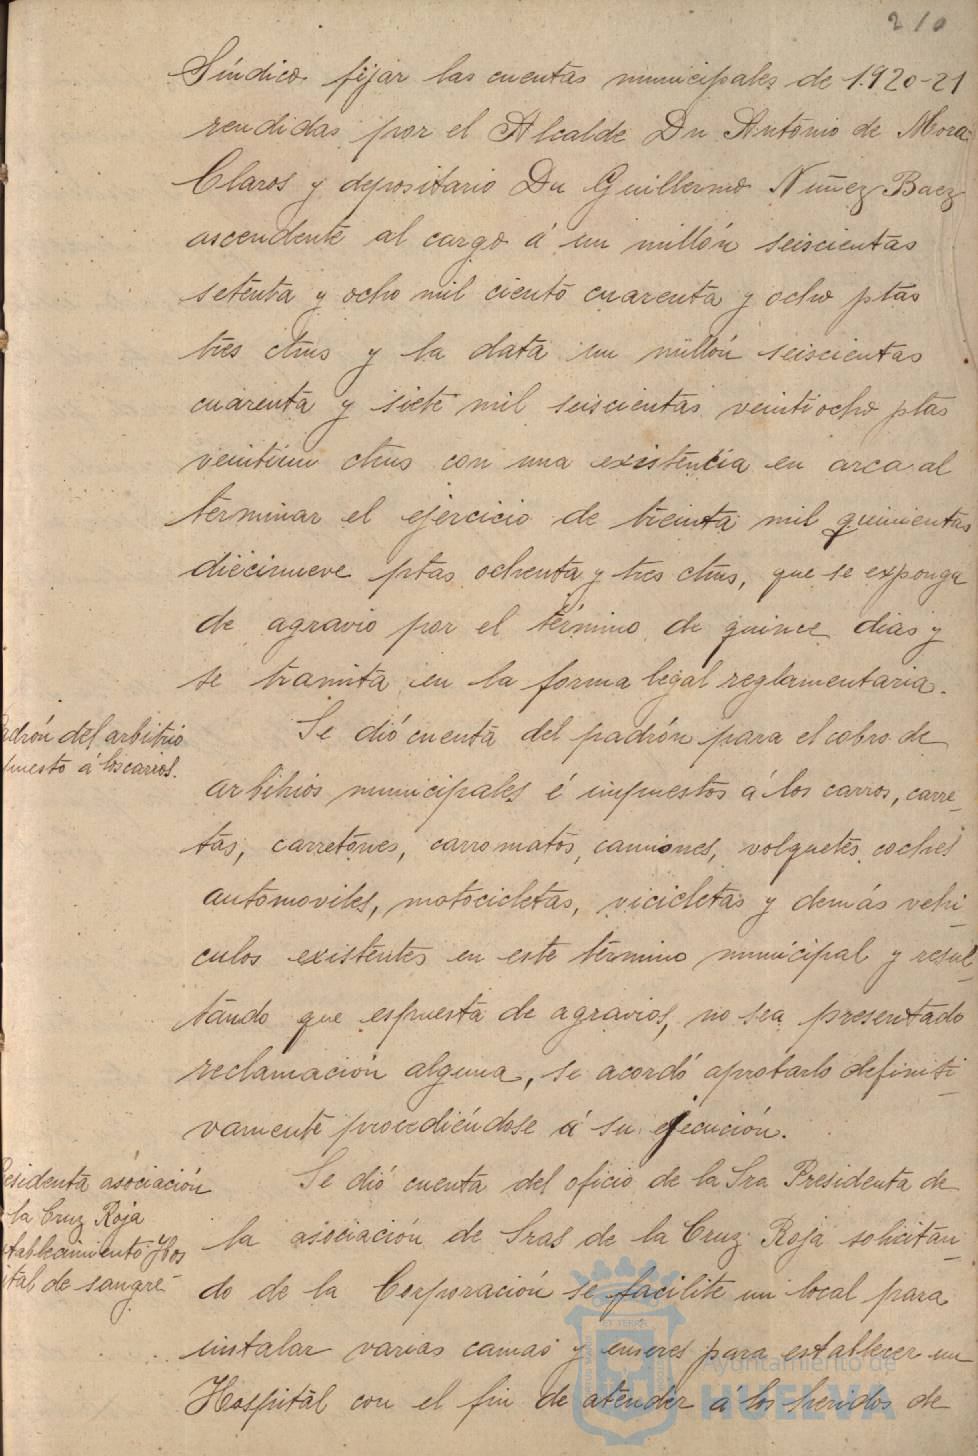 210
Síndico fijar las cuentas municipales de 1.920-21
rendidas por el Alcalde Dn Antonio de Mora
Claros y depositario Dn Guillermo Nuñez Baez
ascendente al cargo á un millón seiscientas
setenta y ocho mil ciento cuarenta y ocho ptas
tres ctms y la data un millón seiscientas
cuarenta y siete mil seiscientas veintiocho ptas
veintiun ctms con una existencia en arca al
terminar el ejercicio de treinta mil quinientas
diecinueve ptas ochenta y tres ctms, que se exponga
de agravio por el término de quince dias y
se tramita en la forma legal reglamentaria.
adrón del arbitrio
puesto á los carros.
Se dió cuenta del padrón para el cobro de
arbitrios municipales é impuestos á los carros, carre-
tas, carretones, carromatos, camiones, volquetes, coches
automoviles, motocicletas, vicicletas y demás vehi-
culos existentes en este término municipal y resul-
tando que espuesta de agravios, no sea presentado
reclamación alguna, se acordó aprobarlo definiti-
vamente procediéndose á su ejecución.
residenta asóciación
la Cruz Roja
tablecimiento Hos
ital de sangre
Se dió cuenta del oficio de la Sra Presidenta de
la asociación de Sras de la Cruz Roja solicitan-
do de la Corporación se facilite un local para
instalar varias camas y enseres para establecer un
Hospital con el fin de atender á los heridos de
Ayuntamiento de
HUELVA